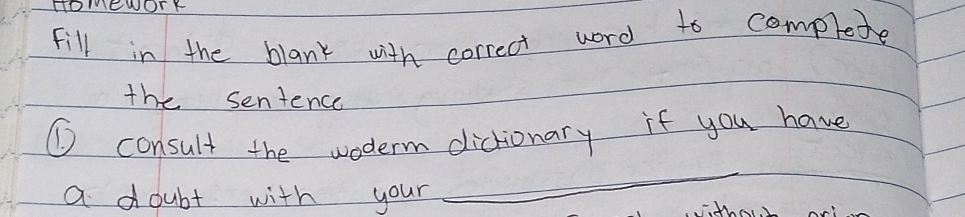 Homework
Fill in the blank with correct word to complete
the sentence
① consult the woderm dictionary if you have
a doubt with your ________
without